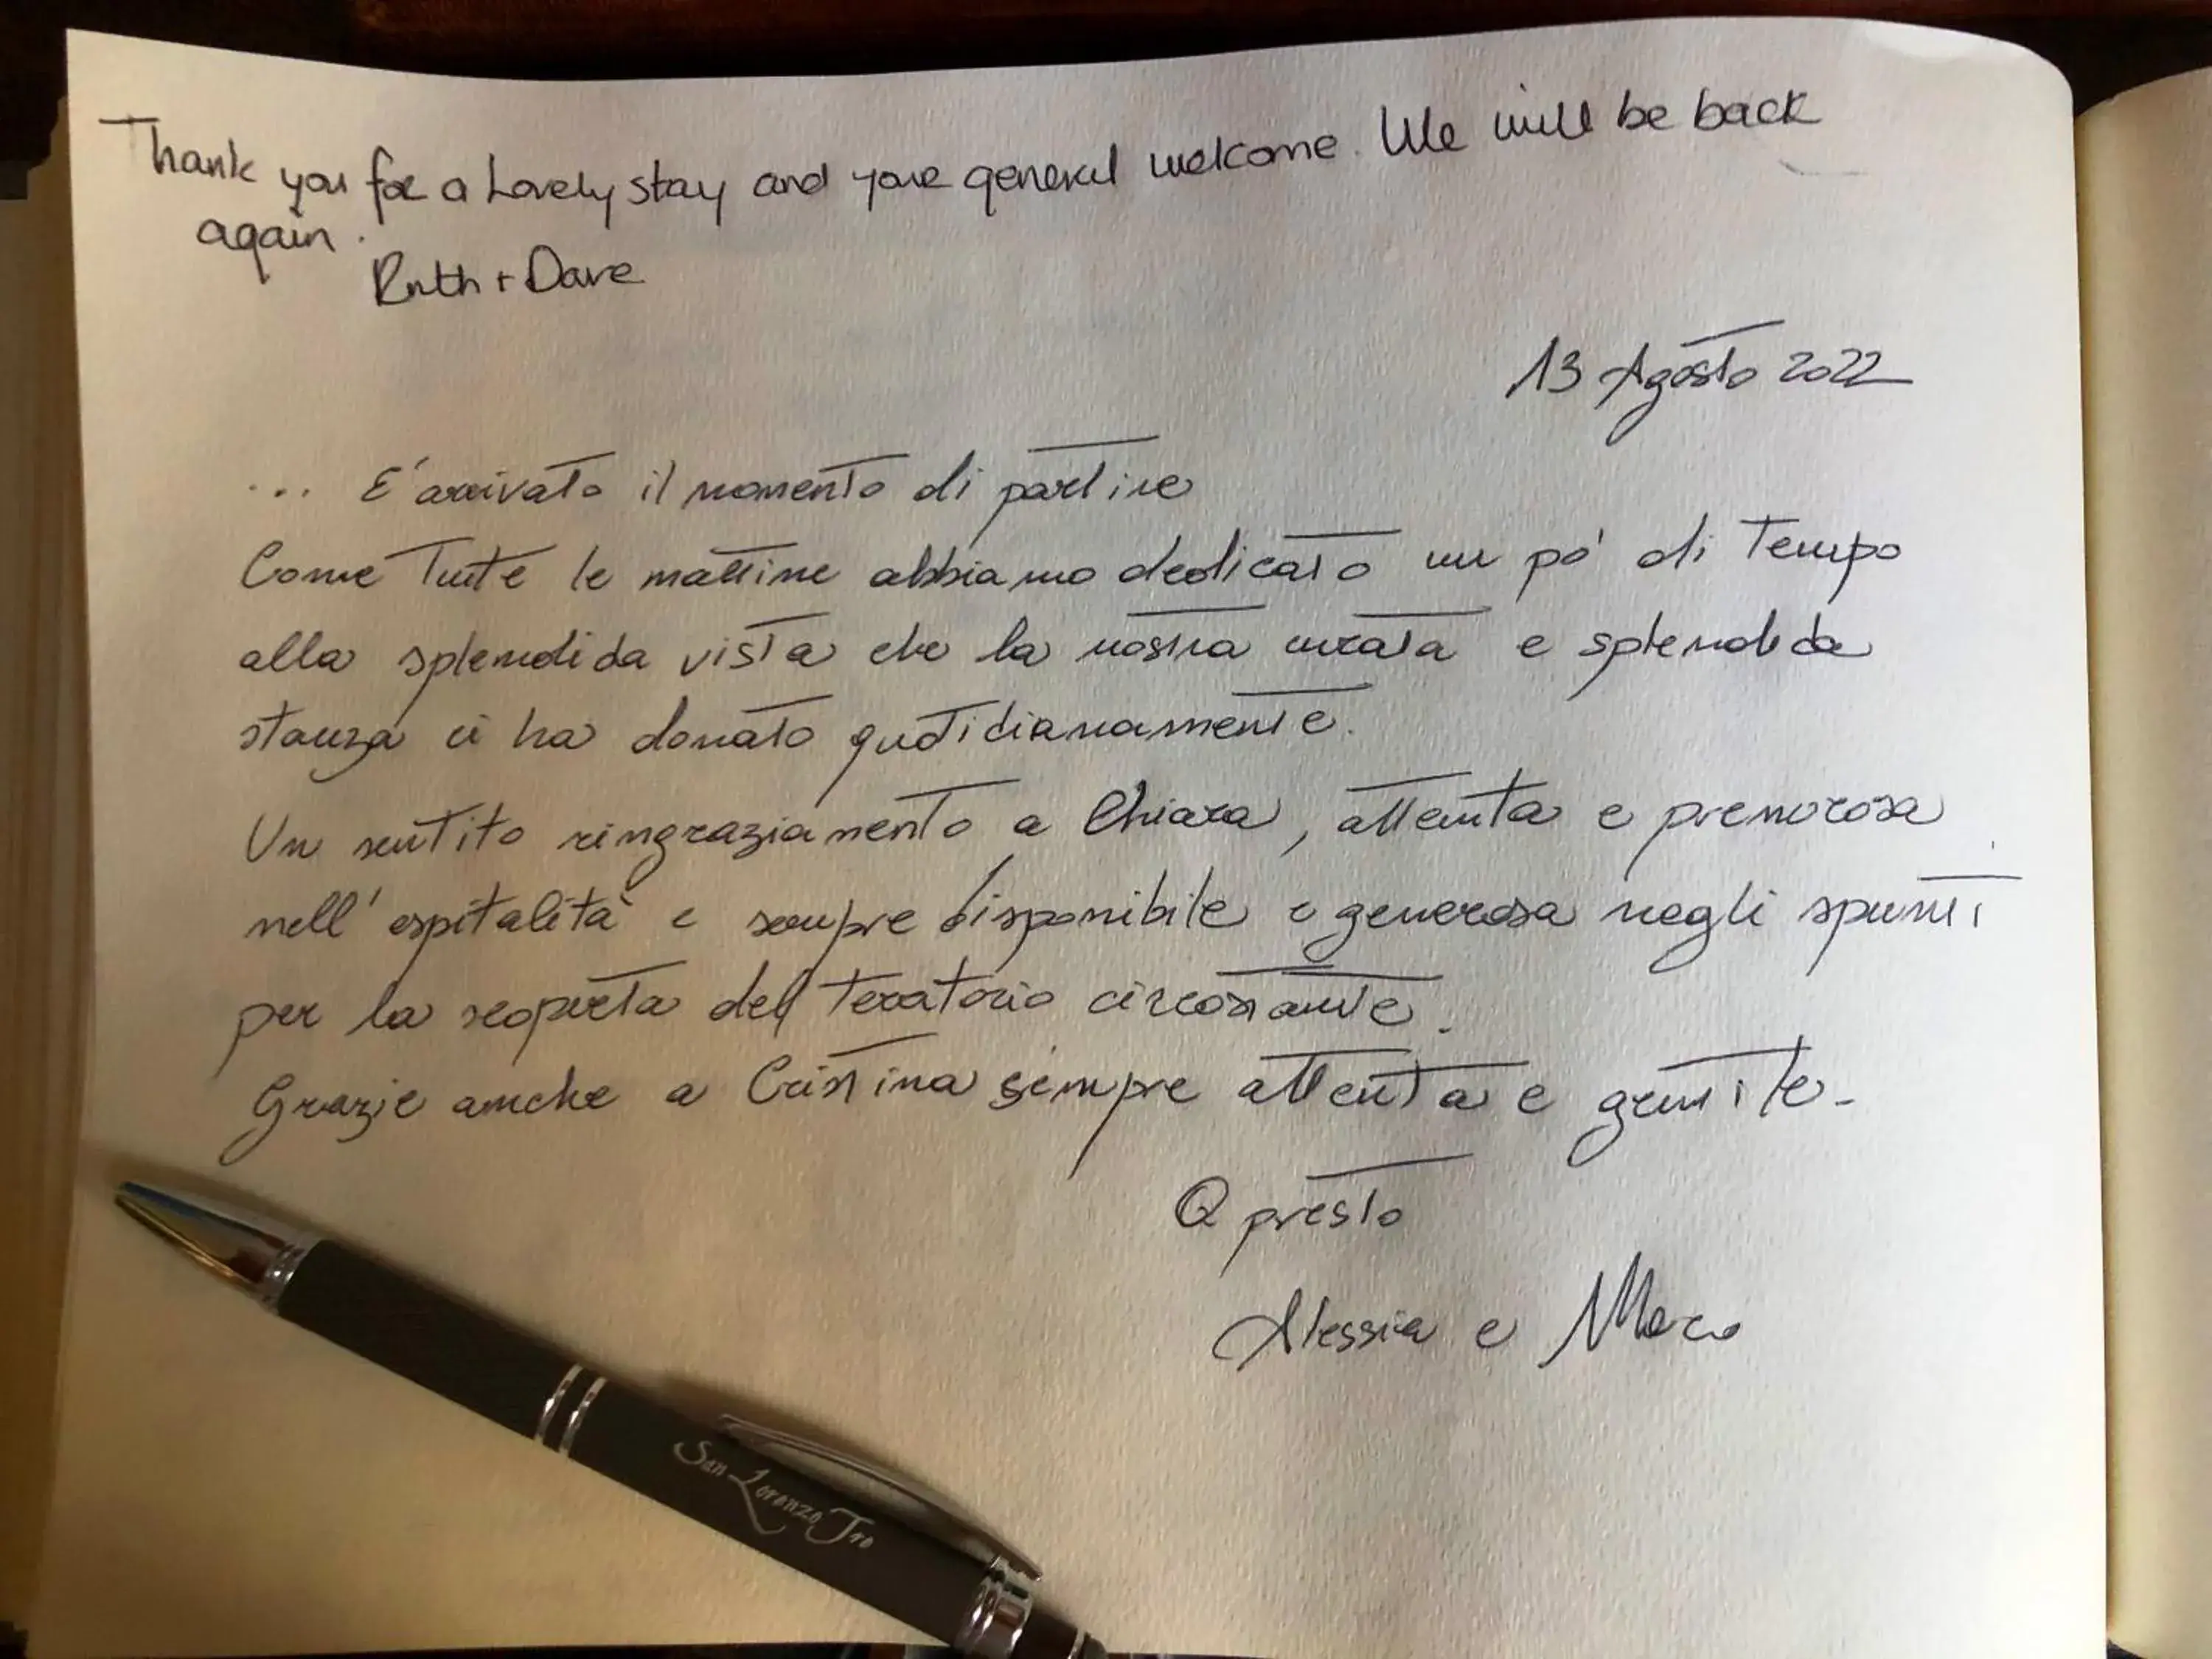 Thank you for a lovely stay and your general welcome. We will be back
again.
Ruth + Dave
13 Agosto 2022
... E' arrivato il momento di partire
Come tutte le mattine abbiamo dedicato un po' di tempo
alla splendida vista che la nostra curata e splendida
stanza ci ha donato quotidianamente.
Un sentito ringraziamento a Chiara, attenta e premurosa
nell'ospitalità e sempre disponibile e generosa negli spunti
per la scoperta del territorio circostante.
Grazie anche a Cristina sempre attenta e gentile.
A presto
Alessia e Marco
San Lorenzo Tre